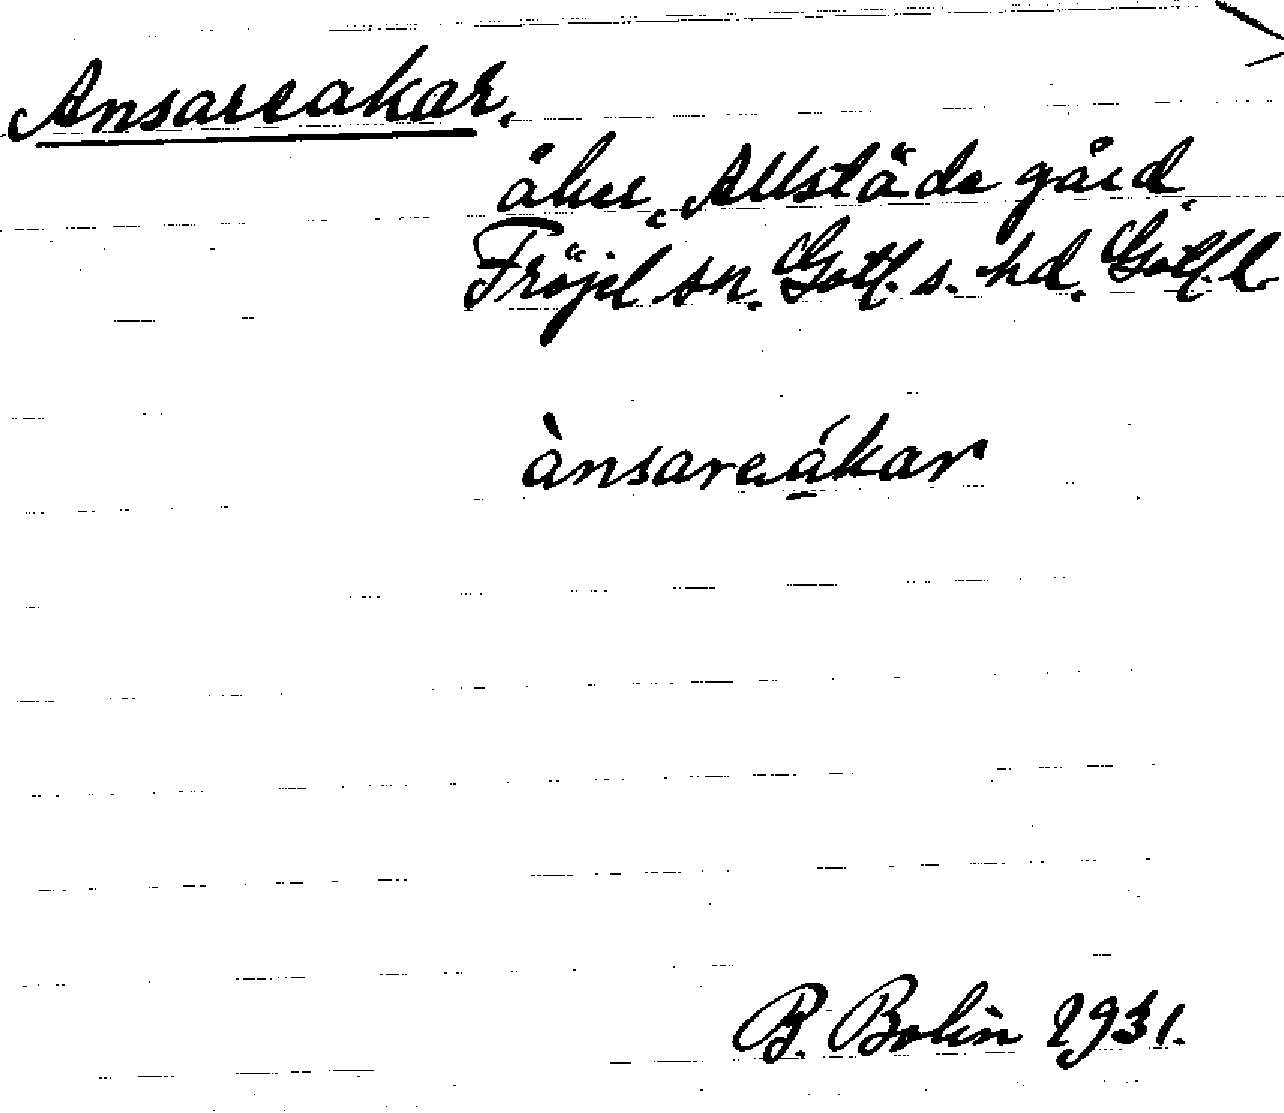 Ansareakar.
åker, Allstäde gård
Fröjel sn. Gotl. s. hd. Gotl. l.
ànsareákar
B. Bolin 1931.